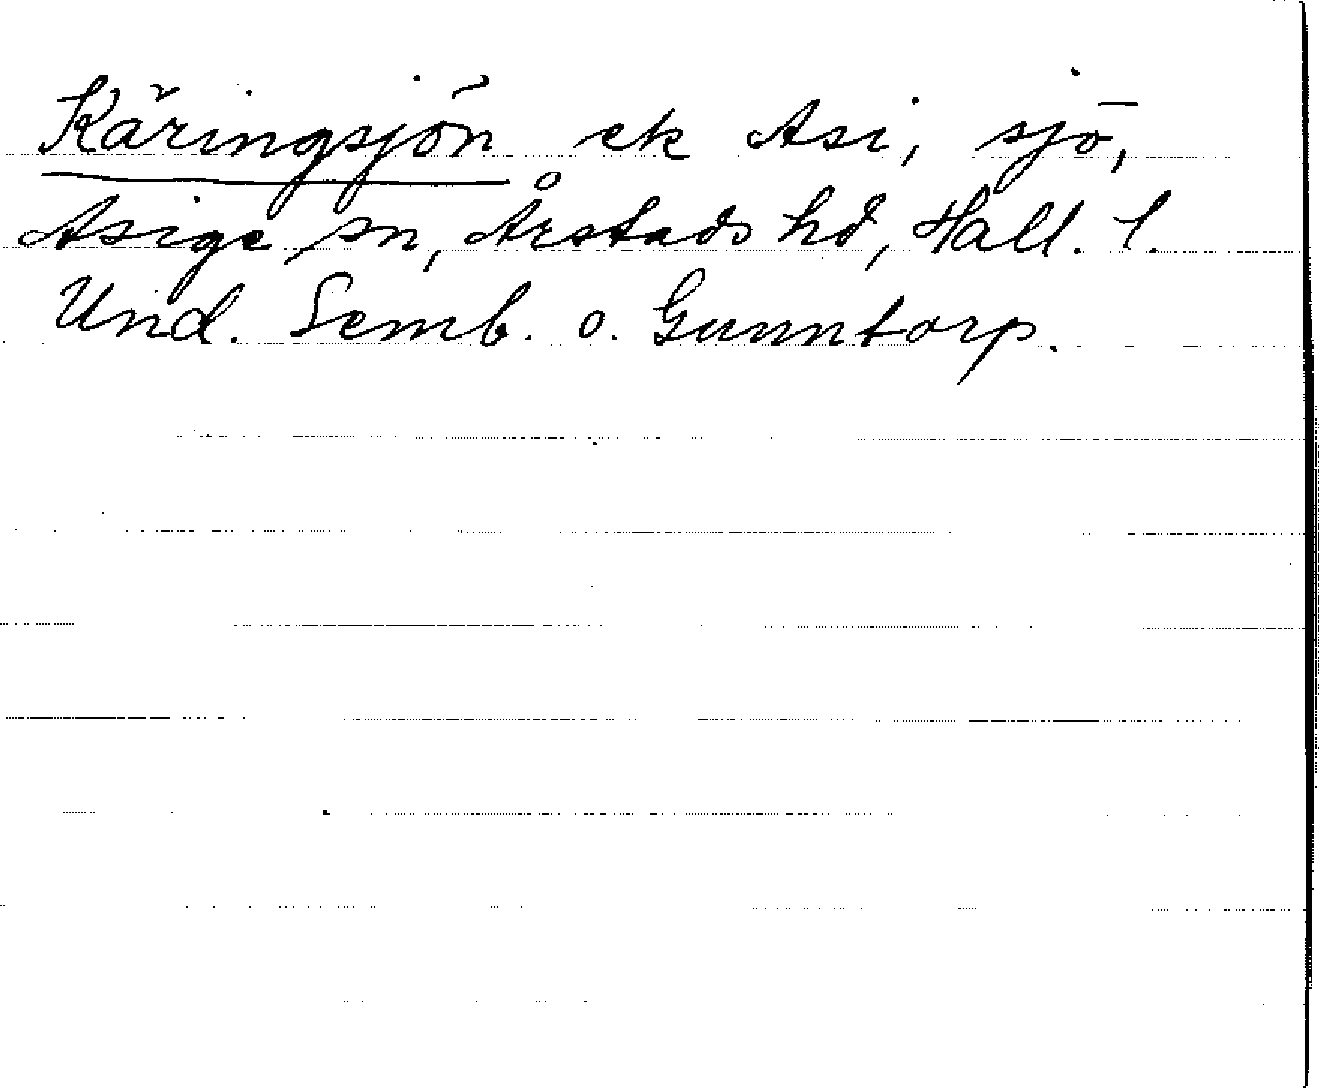 Käringsjön ek Asi, sjö,
Asige sn, Årstads hd, Hall. l.
Und. Semb. o. Gunntorp.